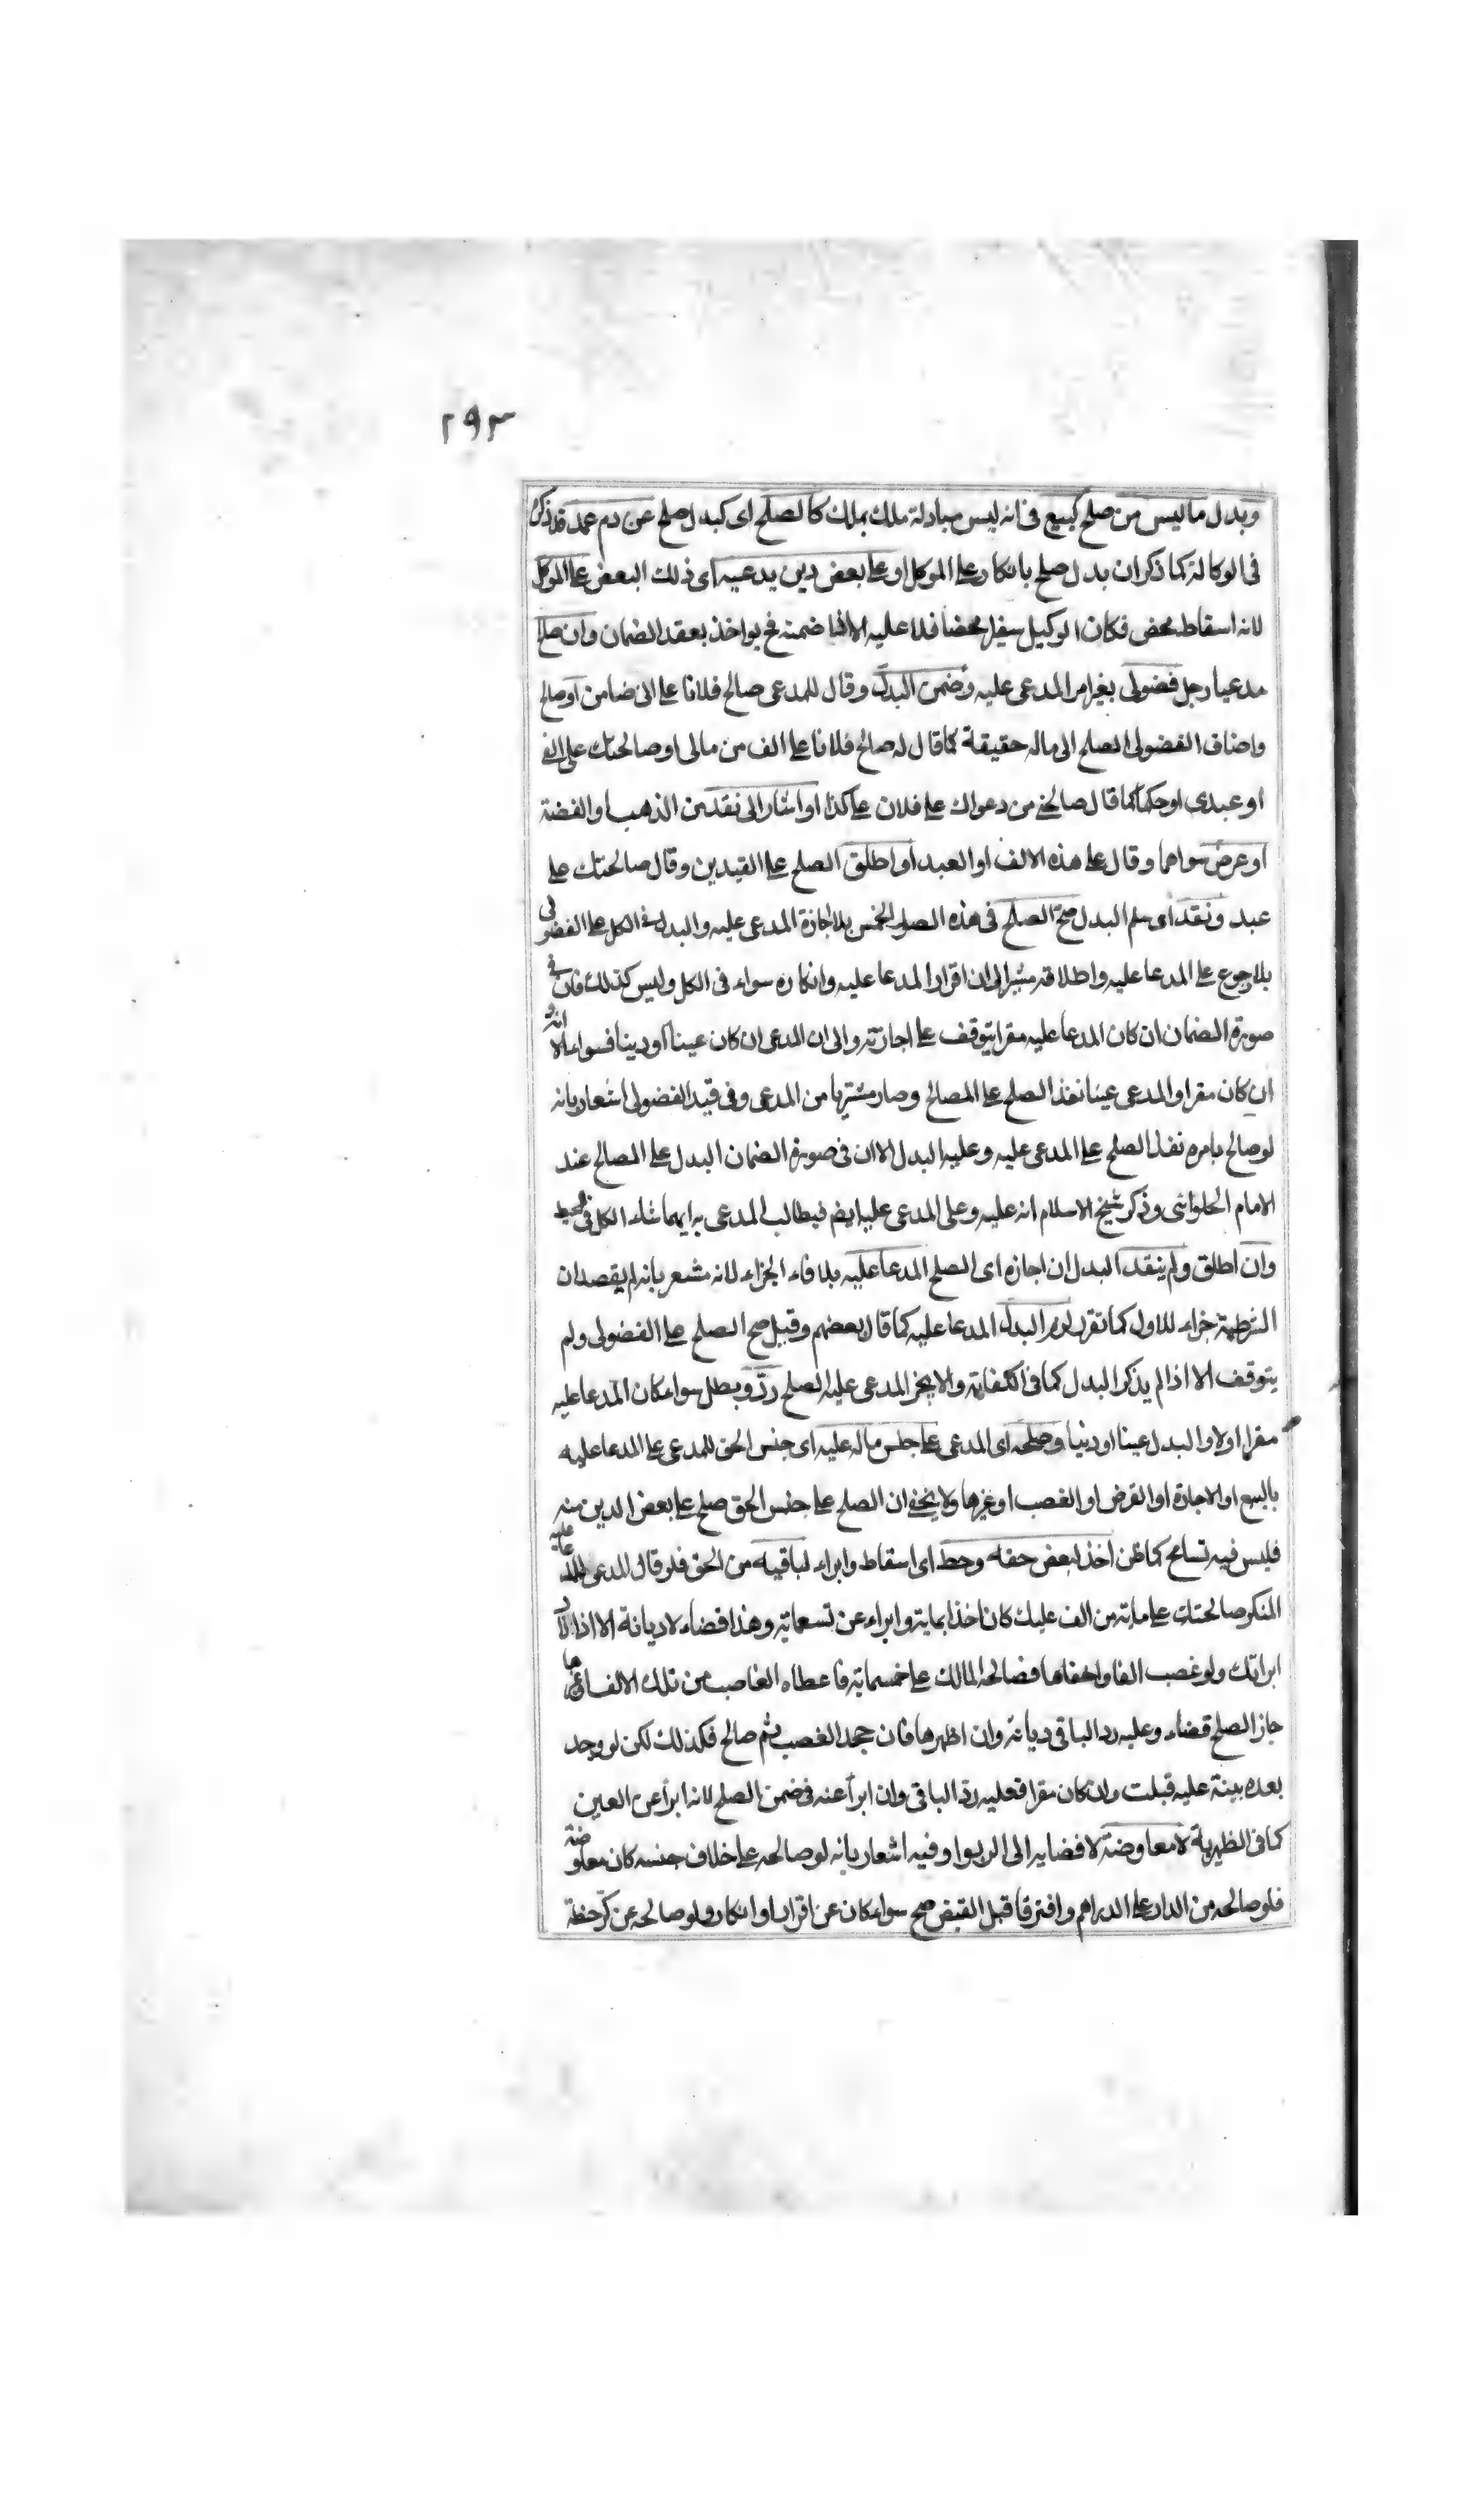 ٢٩٣
وبدل ما ليس من صلح كبيع فى انه ليس مبادلة ملك بملك كالصلح اى كبدل صلح عن دم عمد قد ذكر
فى الوكالة كما ذكر ان بدل صلح بانكار على الموكل او على بعض دين يدعيه اى ذلك البعض على الموكل
لانه اسقاط محض فكان الوكيل سفيرا محضا فلا عليه الا اذا ضمنه فح يواخذ بعقد الضمان وان صالح
مدعيا رجل فضولى بغير امر المدعى عليه وضمن البدل وقال للمدعى صالح فلانا على انى ضامن او صالح
واضاف الفضولى الصلح الى ماله حقيقة كما قال له صالح فلانا على الف من مالى او صالحتك على الفى
او عبدى او حكما كما قال صالحنى من دعواك على فلان على كذا او اشار الى نقد من الذهب او الفضة
او عرض سواهما وقال على هذه الالف او العبد او اطلق الصلح على القيدين وقال صالحتك على
عبد ونقد اى سلم البدل صح الصلح فى هذه الصور الخمس بلا اجازة المدعى عليه والبدل فى الكل على الفضولى
بلا رجوع على المدعا عليه واطلاقه مشير الى ان اقرار المدعا عليه وانكاره سواء فى الكل وليس كذلك فان فى
صورة الضمان ان كان المدعا عليه مقرا يتوقف على اجازته والى ان المدعى ان كان عينا او دينا فسواء الا انه
ان كان مقرا والمدعى عينا نفذ الصلح على المصالح وصار مشتريا من المدعى وفى قيد الفضولى اشعار بانه
لو صالح بامره نفذ الصلح على المدعى عليه وعليه البدل الا ان فى صورة الضمان البدل على المصالح عند
الامام الحلوانى وذكر شيخ الاسلام انه عليه وعلى المدعى عليه ايضم فيطالب المدعى به ايهما شاء الكل فى المحيط
وان اطلق ولم ينقد البدل ان اجازه اى الصلح المدعا عليه بلا فاء الجزاء لانه مشعر بانه لم يقصد ان
الشرطية جزاء للاول كما تقرر لزم البدل المدعا عليه كما قال بعضهم وقيل صح الصلح على الفضولى ولم
يتوقف الا اذا لم يذكر البدل كما فى الكفاية والا يجز المدعى عليه الصلح ردّ وبطل سواء كان المدعا عليه
مقرا او لا والبدل عينا او دينا وصلحه اى المدعى على جنس ماله عليه اى جنس الحق للمدعى على المدعا عليه
بالبيع او الاجارة او القرض او الغصب او غيرها ولا يخفى ان الصلح على جنس الحق صلح على بعض الدين منه
فليس فيه تسامح كما ظن اخذ لبعض حقه وحط اى اسقاط وابراء لباقيه من الحق فلو قال المدعى للمدعا عليه
المنكر صالحتك على ماية من الف عليك كان اخذا بماية وابراء عن تسعماية وهذا قضاء لا ديانة الا اذا زاد
ابراتك ولو غصب الفا واخفاها فصالحه المالك على خمسماية فاعطاه الغاصب من تلك الالف او غيرها
جاز الصلح قضاء وعليه رد الباقى ديانة وان اظهرها فان جحد الغصب ثم صالح فكذلك لكن لو وجد
بعده بينة عليه قبلت وان كان مقرا فعليه ردّ الباقى وان ابرأ عنه فى ضمن الصلح لانه ابرأ عن العين
كما فى الظهيرية لا معاوضة لافضايه الى الربوا وفيه اشعار بانه لو صالحه على خلاف جنسه كان معاوضة
فلو صالحه من الدار على الدراهم وافترقا قبل القبض صح سواء كان عن اقرار او انكار ولو صالحه عن كرّ حنطة